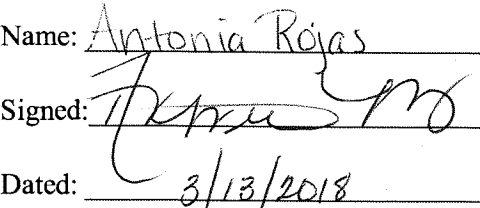 Name: Antonia Rojas
Signed:
Dated: 3/13/2018